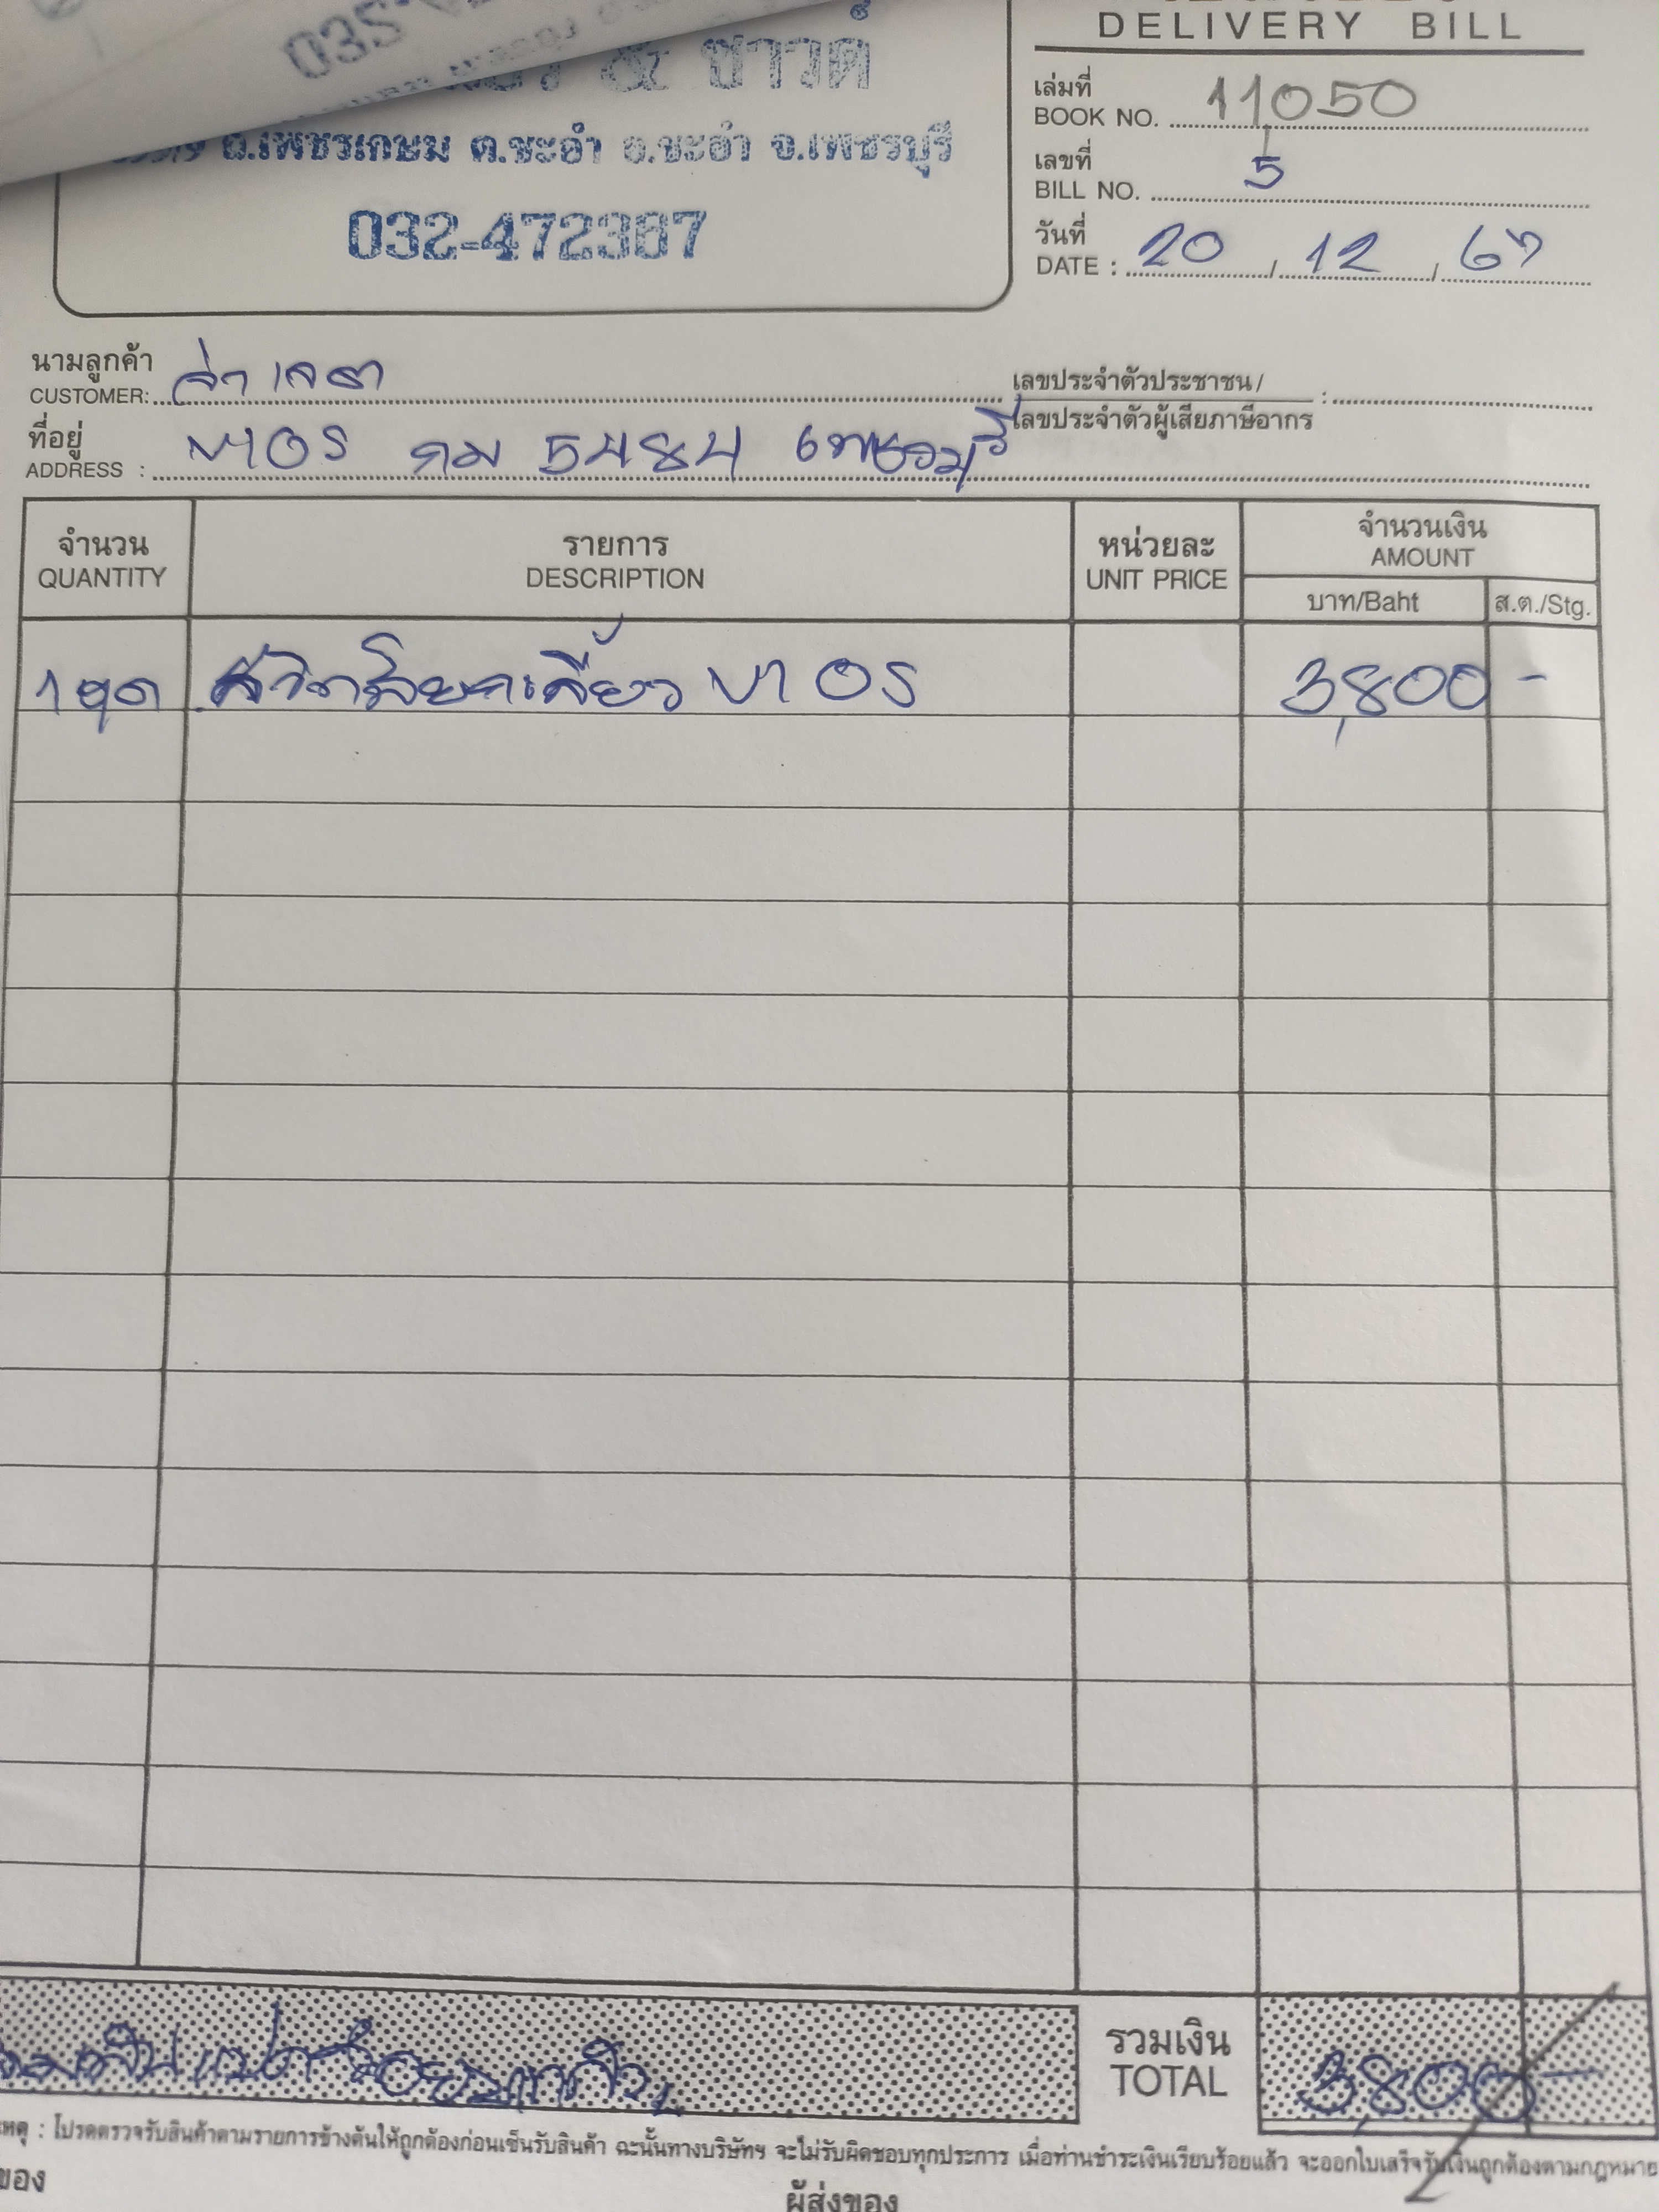 035
& ซาวด์
DELIVERY BILL
เล่มที่
BOOK NO. 11050
ถ.เพชรเกษม ต.ชะอำ อ.ชะอำ จ.เพชรบุรี
เลขที่
BILL NO. 5
032-472387
วันที่
DATE : 20 / 12 / 67
นามลูกค้า
CUSTOMER: จ่า
เลขประจำตัวประชาชน / :
เลขประจำตัวผู้เสียภาษีอากร
ที่อยู่
ADDRESS : VIOS กม 5484 เพชรบุรี
จำนวน
QUANTITY
รายการ
DESCRIPTION
หน่วยละ
UNIT PRICE
จำนวนเงิน
AMOUNT
บาท/Baht
ส.ต./Stg.
1 ชุด สวิตโยกเลี้ยว VIOS 3,800 -
รวมเงิน
TOTAL
3,800 -
เหตุ : โปรดตรวจรับสินค้าตามรายการข้างต้นให้ถูกต้องก่อนเซ็นรับสินค้า ฉะนั้นทางบริษัทฯ จะไม่รับผิดชอบทุกประการ เมื่อท่านชำระเงินเรียบร้อยแล้ว จะออกใบเสร็จรับเงินถูกต้องตามกฎหมาย
ของ
ผู้ส่งของ